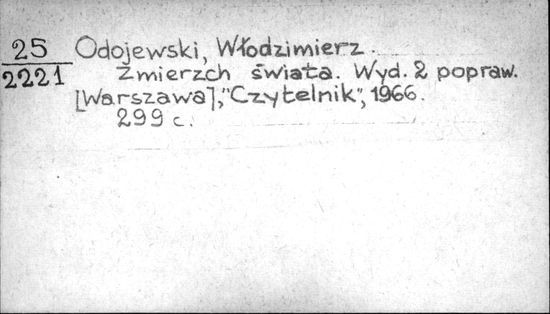 25
2221
Odojewski, Włodzimierz.
Zmierzch świata. Wyd. 2 popraw.
[Warszawa], "Czytelnik", 1966.
299 c.